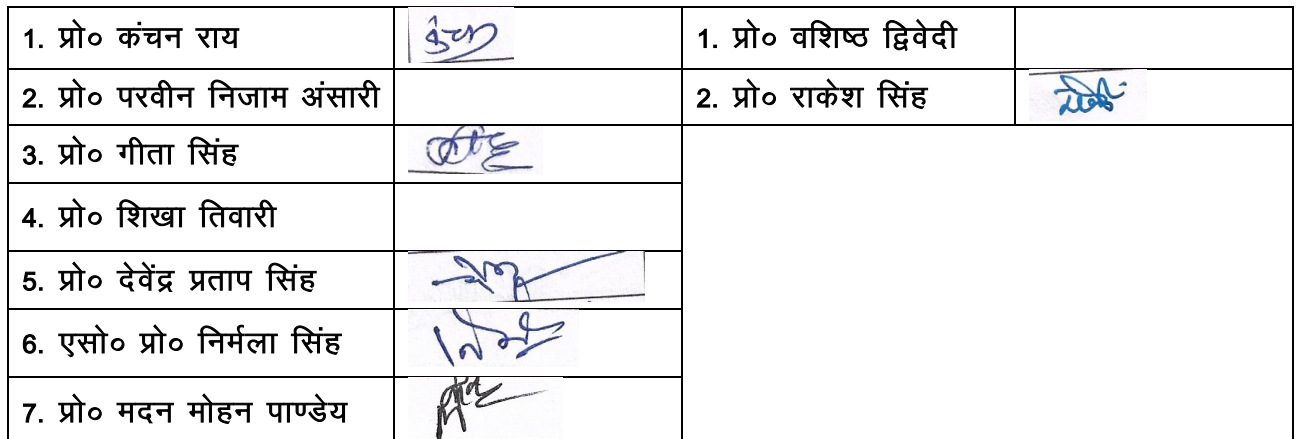 1. प्रो० कंचन राय
1. प्रो० वशिष्ठ द्विवेदी
2. प्रो० परवीन निजाम अंसारी
2. प्रो० राकेश सिंह
3. प्रो० गीता सिंह
4. प्रो० शिखा तिवारी
5. प्रो० देवेंद्र प्रताप सिंह
6. एसो० प्रो० निर्मला सिंह
7. प्रो० मदन मोहन पाण्डेय